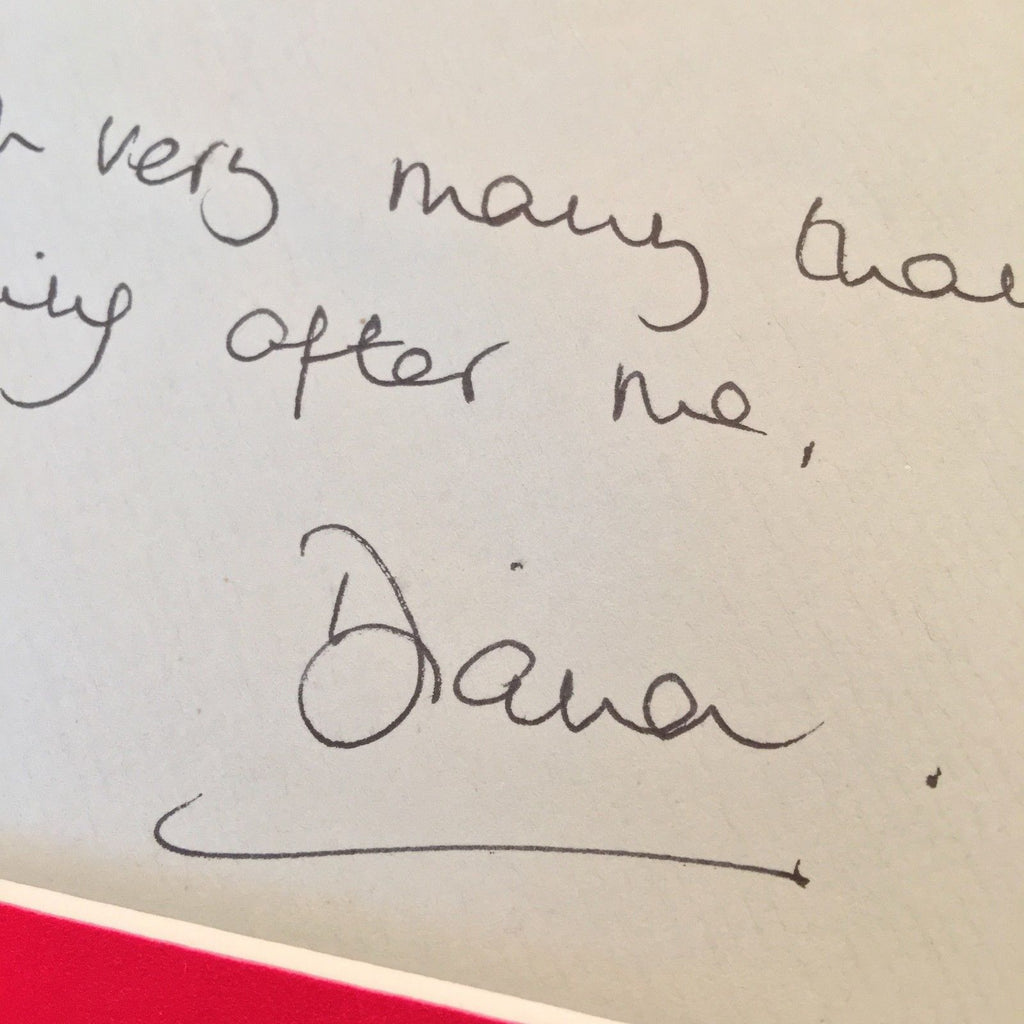 very many than
ing after me,
Diana.